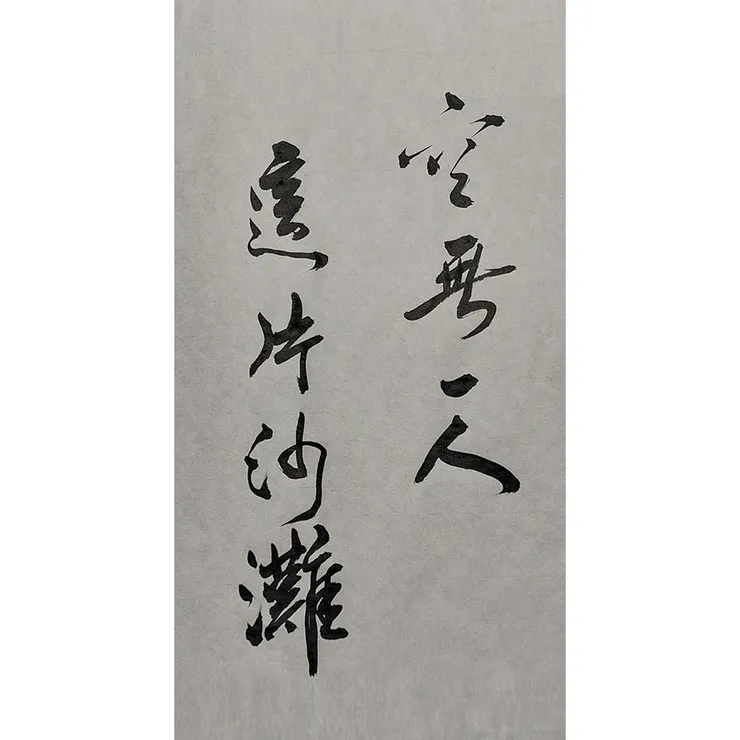 空無一人
這片沙灘